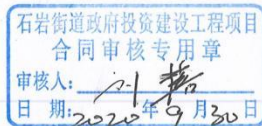 石岩街道政府投资建设工程项目
合同审核专用章
审核人：刘
日期：2020年9月30日